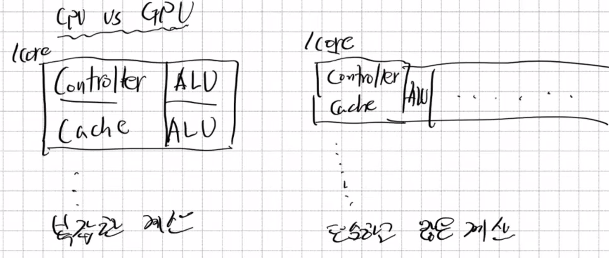 CPU vs GPU
1core
Controller ALU
Cache ALU
복잡한 계산
1core
Controller
Cache ALU
단순하고 많은 계산